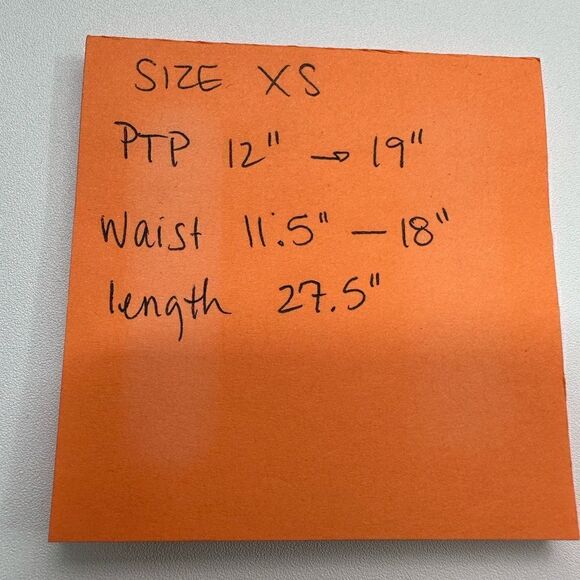 SIZE XS
PTP 12" → 19"
Waist 11.5" — 18"
length 27.5"